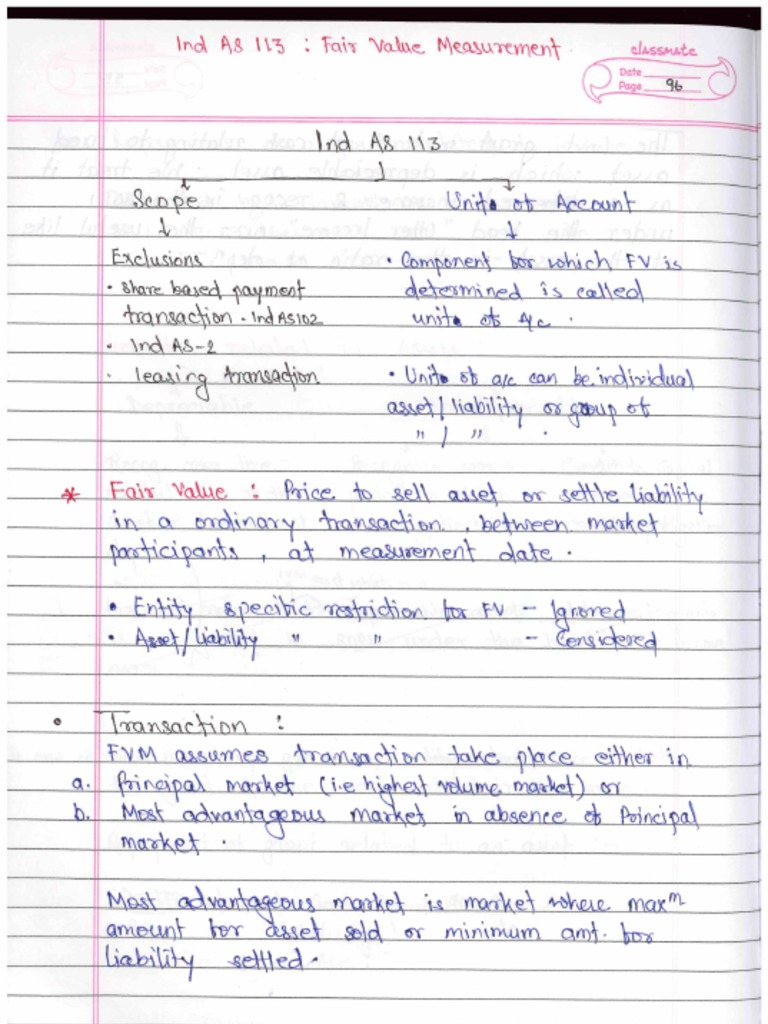 Ind AS 113 : Fair Value Measurement
classmate
Date
Page 96
Ind AS 113
Scope
Unit of Account
Exclusions
• share based payment
transaction - Ind AS 102
• Ind AS-2
• leasing transaction
• Component for which FV is
determined is called
unit of A/c.
• Unit of a/c can be individual
asset/liability or group of
" / " .
* Fair Value : Price to sell asset or settle liability
in a ordinary transaction, between market
participants, at measurement date.
• Entity specific restriction for FV - Ignored
• Asset/liability " " - Considered
• Transaction :
FVM assumes transaction take place either in
a. Principal market (i.e highest volume market) or
b. Most advantageous market in absence of Principal
market.
Most advantageous market is market where maxm
amount for asset sold or minimum amt. for
liability settled.